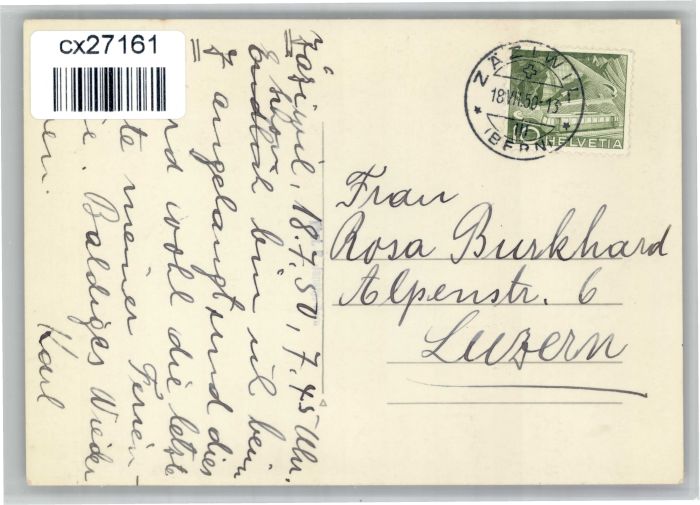 cx27161
ZÄZIWIL
18.VII.50-13
(BERN)
10
HELVETIA
Frau
Rosa Burkhard
Alpenstr. 6
Luzern
Zäziwil, 18.7.50, 7.45 Uhr.
Endlich bin ich beim
schon
Z angelangt, und dies
wohl die letzte
te meiner Ferien-
ie. Baldiges Wieder
en.
Karl